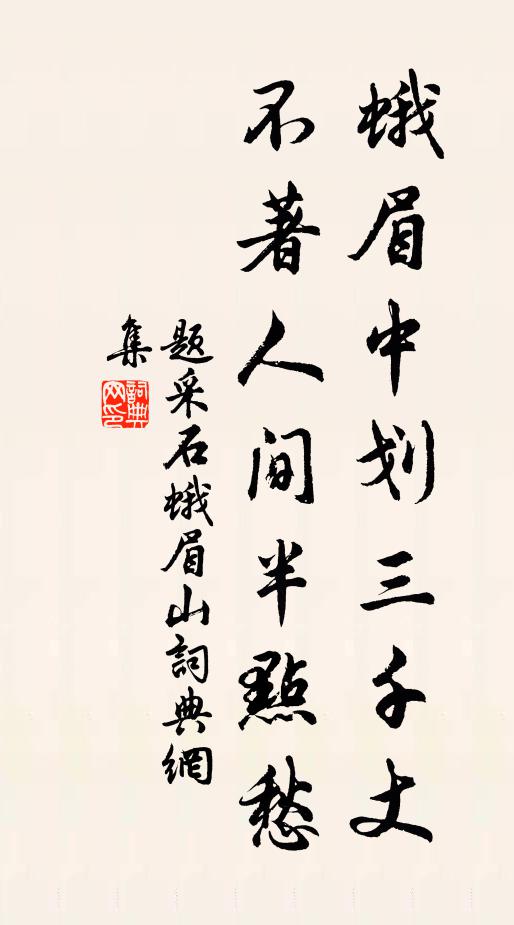 蛾眉中划三千丈
不著人间半點愁
题采石蛾眉山詞典網
集
詞典网印